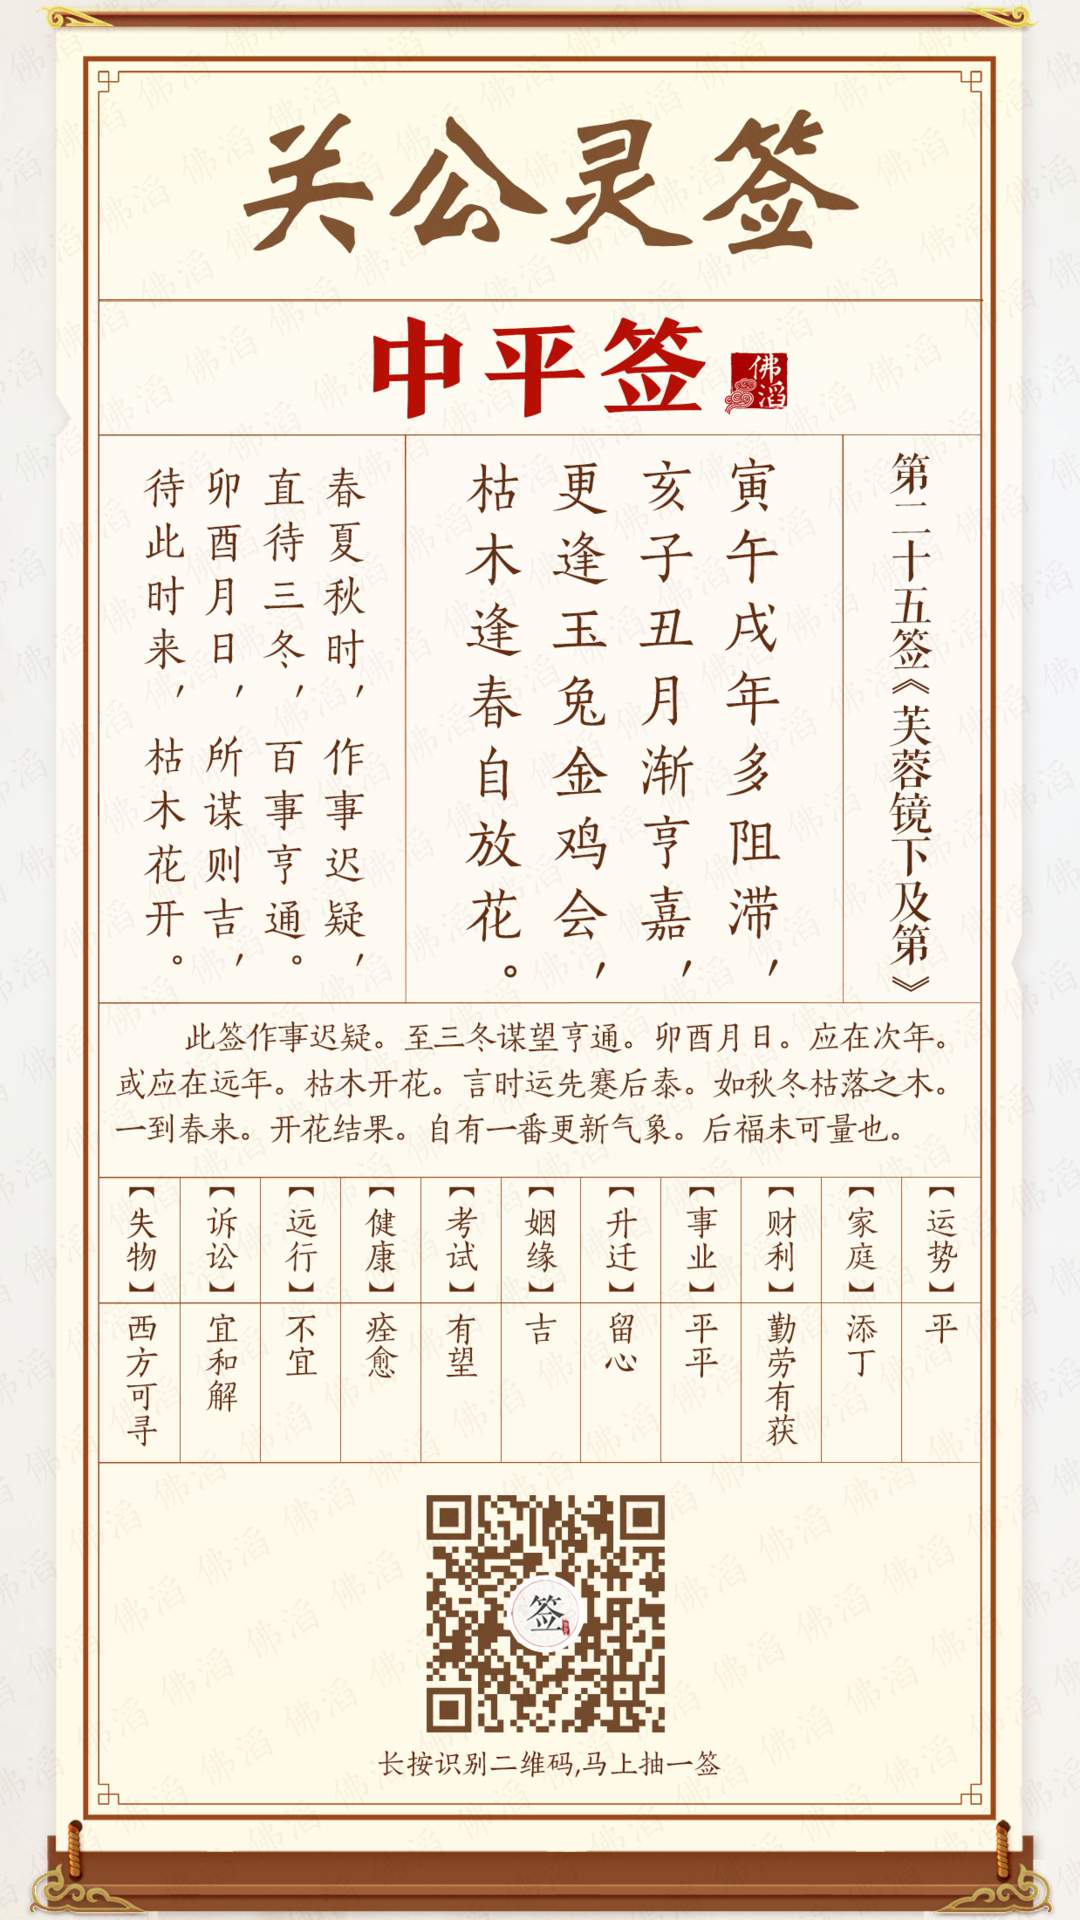 关公灵签
中平签
佛滔
第二十五签《芙蓉镜下及第》
寅午戌年多阻滞，
亥子丑月渐亨嘉，
更逢玉兔金鸡会，
枯木逢春自放花。
春夏秋时，作事迟疑，
直待三冬，百事亨通。
卯酉月日，所谋则吉，
待此时来，枯木花开。
此签作事迟疑。至三冬谋望亨通。卯酉月日。应在次年。
或应在远年。枯木开花。言时运先蹇后泰。如秋冬枯落之木。
一到春来。开花结果。自有一番更新气象。后福未可量也。
【运势】
平
【家庭】
添丁
【财利】
勤劳有获
【事业】
平平
【升迁】
留心
【姻缘】
吉
【考试】
有望
【健康】
痊愈
【远行】
不宜
【诉讼】
宜和解
【失物】
西方可寻
签
长按识别二维码,马上抽一签